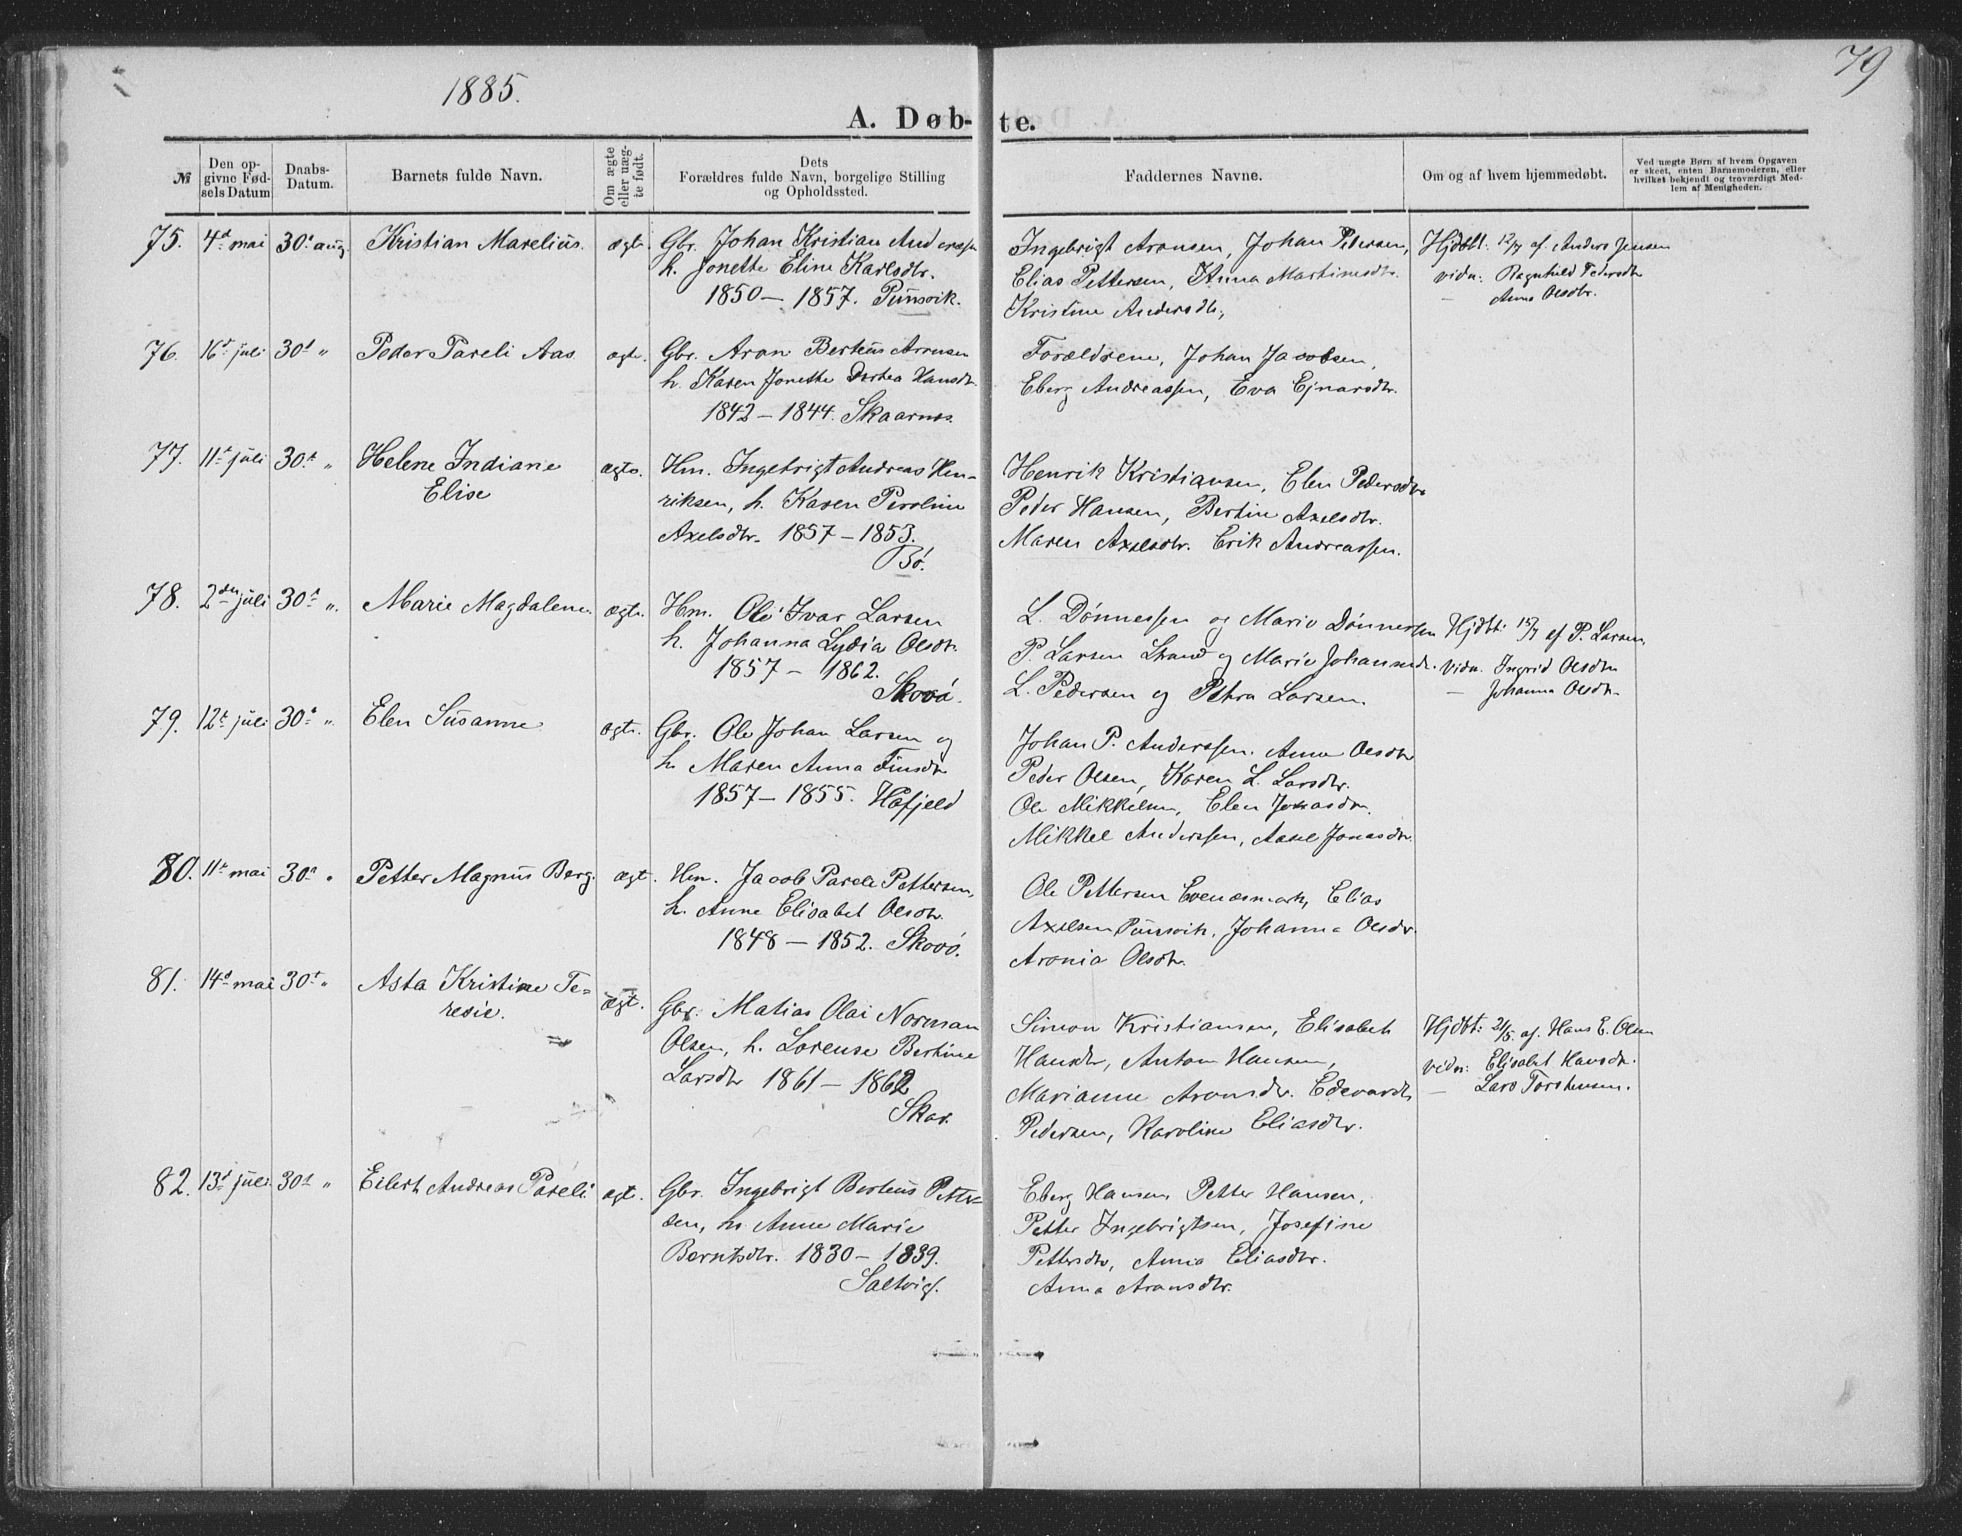 79
1885.
A. Døb-te.
№
Den op-
givne Fød-
sels Datum
Daabs-
Datum.
Barnets fulde Navn.
Om ægte
eller uæg-
te født.
Dets
Forældres fulde Navn, borgelige Stilling
og Opholdssted.
Faddernes Navne.
Om og af hvem hjemmedøbt.
Ved uægte Børn af hvem Opgaven
er skeet, enten Barnemoderen, eller
hvilket bekjendt og troværdigt Med-
lem af Menigheden.
75. 4d mai 30d aug Kristian Marelius. ægte.
Gbr. Johan Kristian Andersen
h. Jonette Eline Karlsdtr.
1850 – 1857. Punsvik.
Ingebrigt Aronsen, Johan Pedersen,
Elias Pettersen, Anna Martinusdtr.
Kristine Andersdtr,
Hjdbt: 12/7 af Anders Jensen
vidn: Ragnhild Pedersdtr
— Anne Olsdtr.
76. 16d juli 30d „ Peder Pareli Aas ægte.
Gbr. Aron Berteus Aronsen
h. Karen Jonette Dortea Hansdtr.
1842 – 1844. Skaarnes
Forældrene, Johan Jacobsen,
Eberg Andreassen, Eva Ejnarsdtr.
77. 11t juli 30t „ Helene Indiane
Elise
ægte.
Hm. Ingebrigt Andreas Hen-
riksen, h. Karen Peroline
Axelsdtr. 1857 – 1853.
Bø.
Henrik Kristiansen, Elen Pedersdtr
Peder Hansen, Bertine Axelsdtr.
Maren Axelsdtr. Erik Andreassen.
78. 2den juli 30t „ Marie Magdalene. ægte.
Hm. Ole Ivar Larsen
h. Johanna Lydia Olsdtr.
1857 – 1862.
Skovø.
L. Dønnessen og Marie Dønnessen
P. Larsen Strand og Marie Johannesdtr.
L. Pedersen og Petra Larsen.
Hjdbt: 15/7 af P. Larsen,
vidn. Ingrid Olsdtr
— Johanna Olsdtr.
79. 12t juli 30t „ Elen Susanne ægte.
Gbr. Ole Johan Larsen og
h. Maren Anna Finsdtr
1857 – 1855. Hafjeld
Johan P. Anderssen. Anne Olsdtr
Peder Olsen, Karen L. Larsdtr.
Ole Mikkelsen, Elen Jonasdtr.
Mikkel Anderssen, Jonasdtr.
80. 11t mai 30t „ Petter Magnus Berg. ægt.
Hm. Jacob Pareli Pettersen,
h. Anne Elisabet Olsdtr.
1848 – 1852. Skovø.
Ole Pettersen Evenæsmark, Elias
Axelsen Punsvik, Johanna Olsdtr.
Aronia Olsdtr.
81. 14d mai 30t „ Asta Kristine Te-
resie.
ægt.
Gbr. Matias Olai Norman
Olsen, h. Lorense Bertine
Larsdtr 1861 – 1862
Skar.
Simon Kristiansen, Elisabet
Hansdtr, Anton Hansen,
Marianne Aronsdtr. Edevardt
Pedersen, Karoline Eliasdtr.
Hjdbt: 21/5. af. Hans E. Olsen
vidn: Elisabet Hansdtr.
— Lars Torstensen.
82. 13d juli 30d „ Eilert Andreas Pareli ægt.
Gbr. Ingebrigt Berteus Petter-
sen, h. Anne Marie
Berntsdtr. 1830 – 1839.
Saltvig.
Eberg Hansen, Petter Hansen,
Petter Ingebrigtsen, Josefine
Pettersdtr, Anna Eliasdtr.
Anna Aronsdtr.